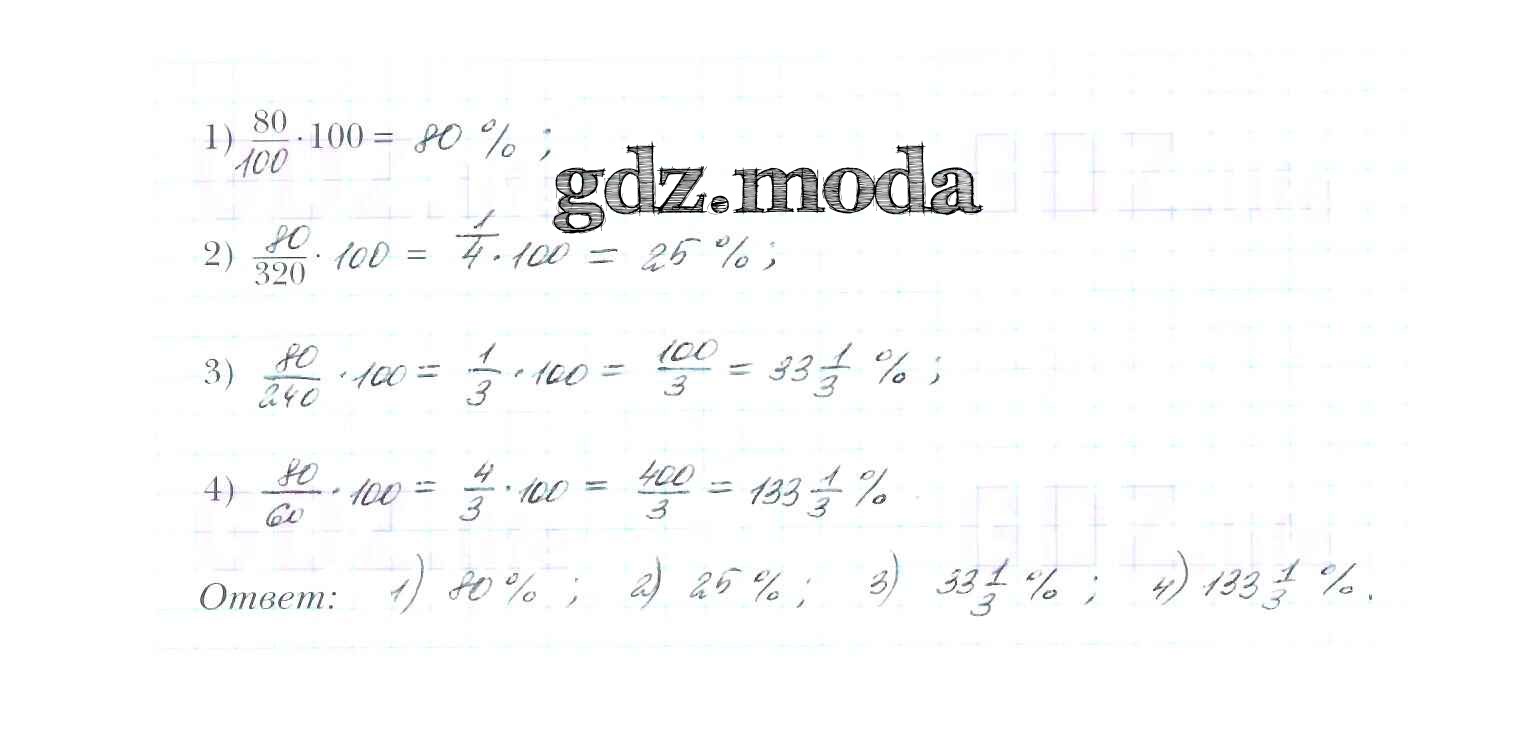 1) 80/100 · 100 = 80 % ;
gdz.moda
2) 80/320 · 100 = 1/4 · 100 = 25 % ;
3) 80/240 · 100 = 1/3 · 100 = 100/3 = 33 1/3 % ;
4) 80/60 · 100 = 4/3 · 100 = 400/3 = 133 1/3 %
Ответ: 1) 80 % ; 2) 25 % ; 3) 33 1/3 % ; 4) 133 1/3 % .